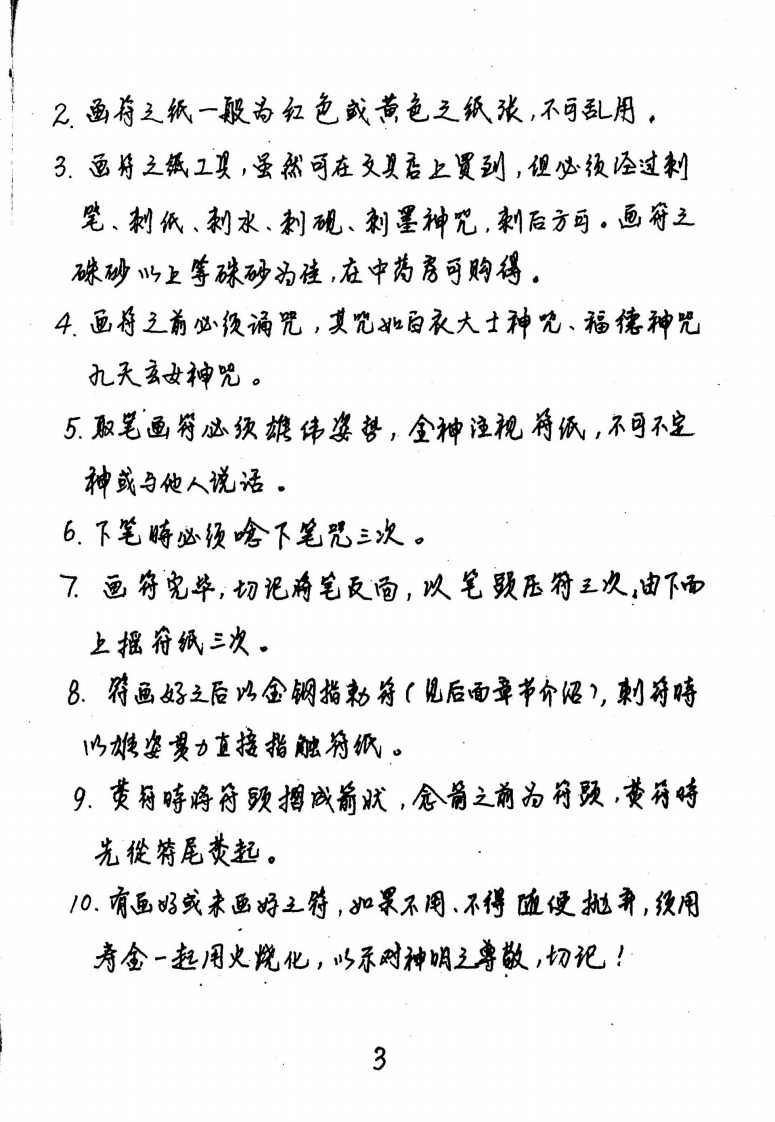 2. 画符之纸一般为红色或黄色之纸张,不可乱用。
3. 画符之纸工具,虽然可在文具店上買到,但必须经过刺
笔、刺纸、刺水、刺砚、刺墨神咒,刺后方可。画符之
硃砂以上等硃砂为佳,在中药房可购得。
4. 画符之前必须诵咒,其咒如白衣大士神咒、福德神咒
九天玄女神咒。
5. 取笔画符必须雄伟姿势,全神注视符纸,不可不定
神或与他人说话。
6. 下笔時必须唸下笔咒三次。
7. 画符完毕,切记将笔反面,以笔頭压符三次,由下面
上摇符纸三次。
8. 符画好之后以金钢指勅符(见后面章节介绍),刺符時
以雄姿贯力直接指触符纸。
9. 焚符時将符頭摺成箭状,念箭之前为符頭,焚符時
先從符尾焚起。
10. 有画好或未画好之符,如果不用、不得随便抛弃,须用
寿金一起用火烧化,以示对神明之尊敬,切记!
3